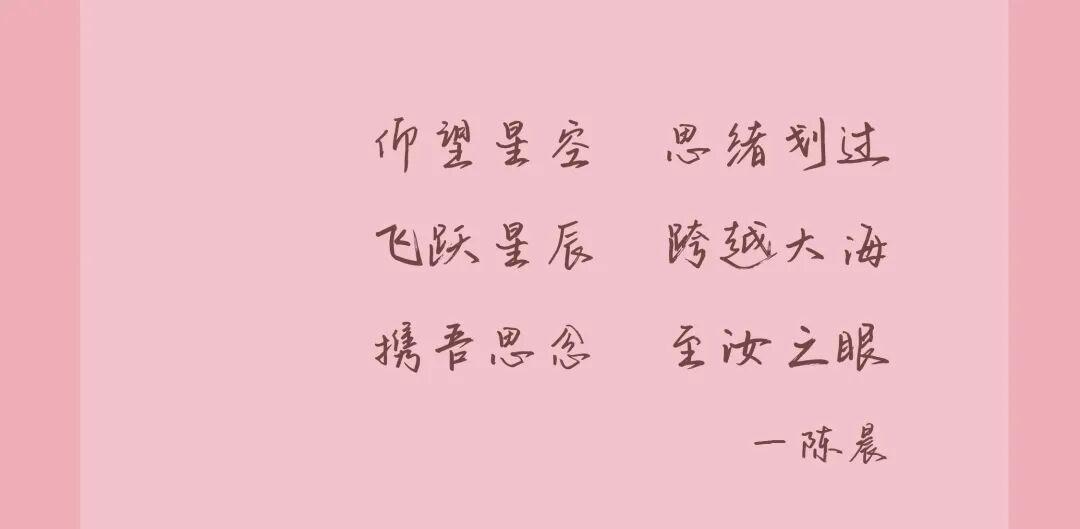 仰望星空 思绪划过
飞跃星辰 跨越大海
携吾思念 至汝之眼
—陈晨